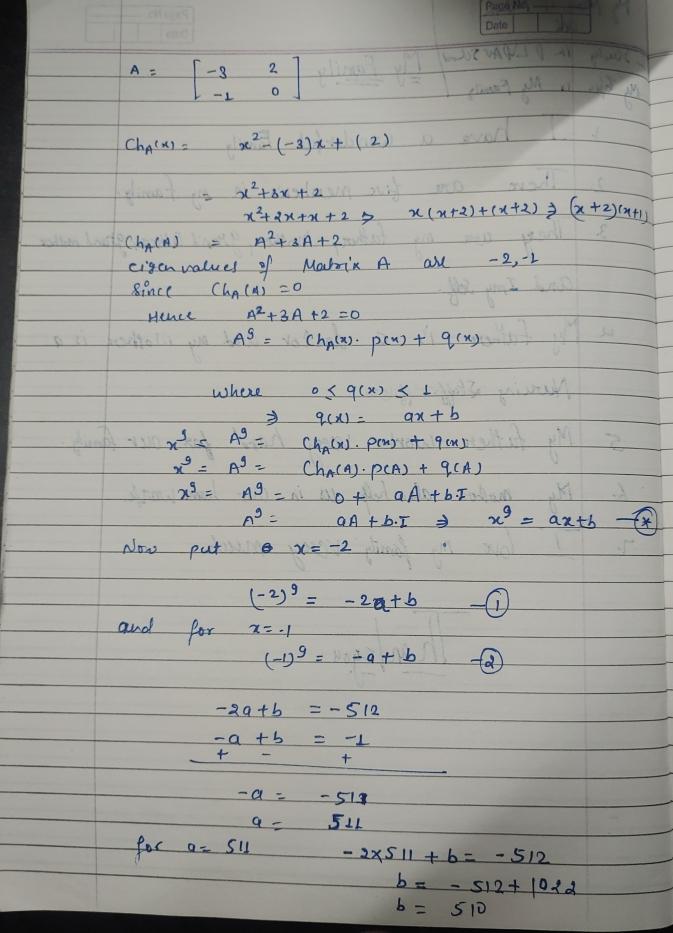 Page No.
Date
A = [ -3 2
-1 0 ]
Ch_A(x) = x² - (-3)x + (2)
= x² + 3x + 2
x² + 2x + x + 2 ⇒ x(x+2) + (x+2) ⇒ (x+2)(x+1)
Ch_A(A) = A² + 3A + 2
eigen values of Matrix A are -2, -1
Since Ch_A(A) = 0
Hence A² + 3A + 2 = 0
A⁹ = Ch_A(x). p(x) + q(x)
where 0 ≤ q(x) ≤ 1
⇒ q(x) = ax + b
x⁹ = A⁹ = Ch_A(x). p(x) + q(x)
x⁹ = A⁹ = Ch_A(A). p(A) + q(A)
x⁹ = A⁹ = 0 + aA + b.I
A⁹ = aA + b.I ⇒ x⁹ = ax + b —*
Now put x = -2
(-2)⁹ = -2a + b —①
and for x = -1
(-1)⁹ = -a + b —②
-2a + b = -512
-a + b = -1
+ - +
-a = -511
a = 511
for a = 511 -2x511 + b = -512
b = -512 + 1022
b = 510